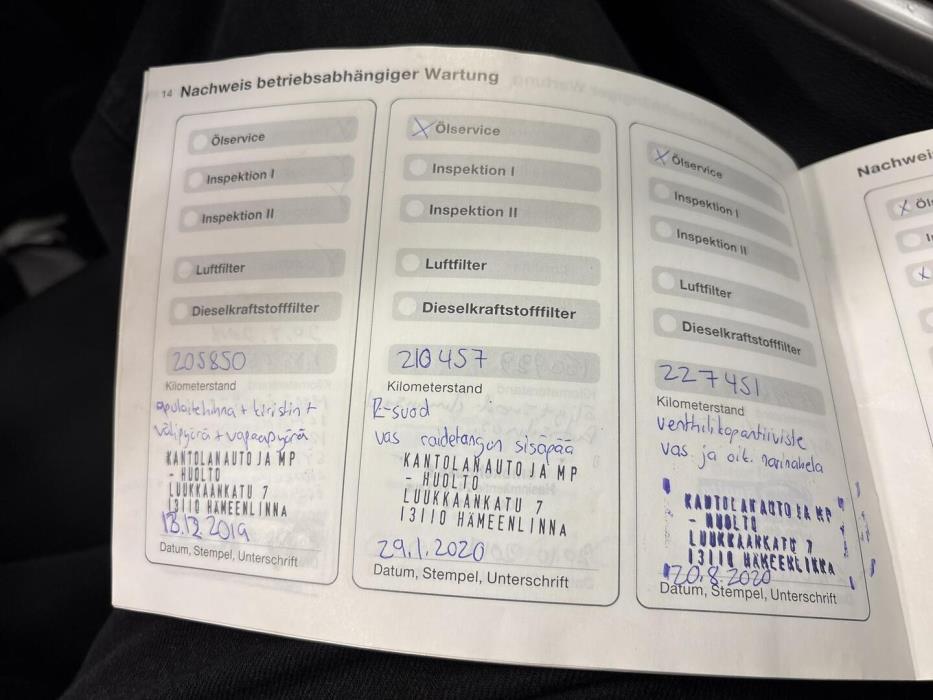 14 Nachweis betriebsabhängiger Wartung
Ölservice
Inspektion I
Inspektion II
Luftfilter
Dieselkraftstofffilter
205850
Kilometerstand
apulaitehihna + kiristin +
välipyörä + vapaapyörä
KANTOLAN AUTO JA MP
- HUOLTO
LUUKKAANKATU 7
13110 HÄMEENLINNA
18.12.2019
Datum, Stempel, Unterschrift
X Ölservice
Inspektion I
Inspektion II
Luftfilter
Dieselkraftstofffilter
210457
Kilometerstand
R-suod
vas raidetangon sisäpää
KANTOLAN AUTO JA MP
- HUOLTO
LUUKKAANKATU 7
13110 HÄMEENLINNA
29.1.2020
Datum, Stempel, Unterschrift
X Ölservice
Inspektion I
Inspektion II
Luftfilter
Dieselkraftstofffilter
227451
Kilometerstand
venttiilikopantiiviste
vas ja oik. navinahela
KANTOLAN AUTO JA MP
- HUOLTO
LUUKKAANKATU 7
13110 HÄMEENLINNA
20.8.2020
Datum, Stempel, Unterschrift
Nachwei
X Öl
X